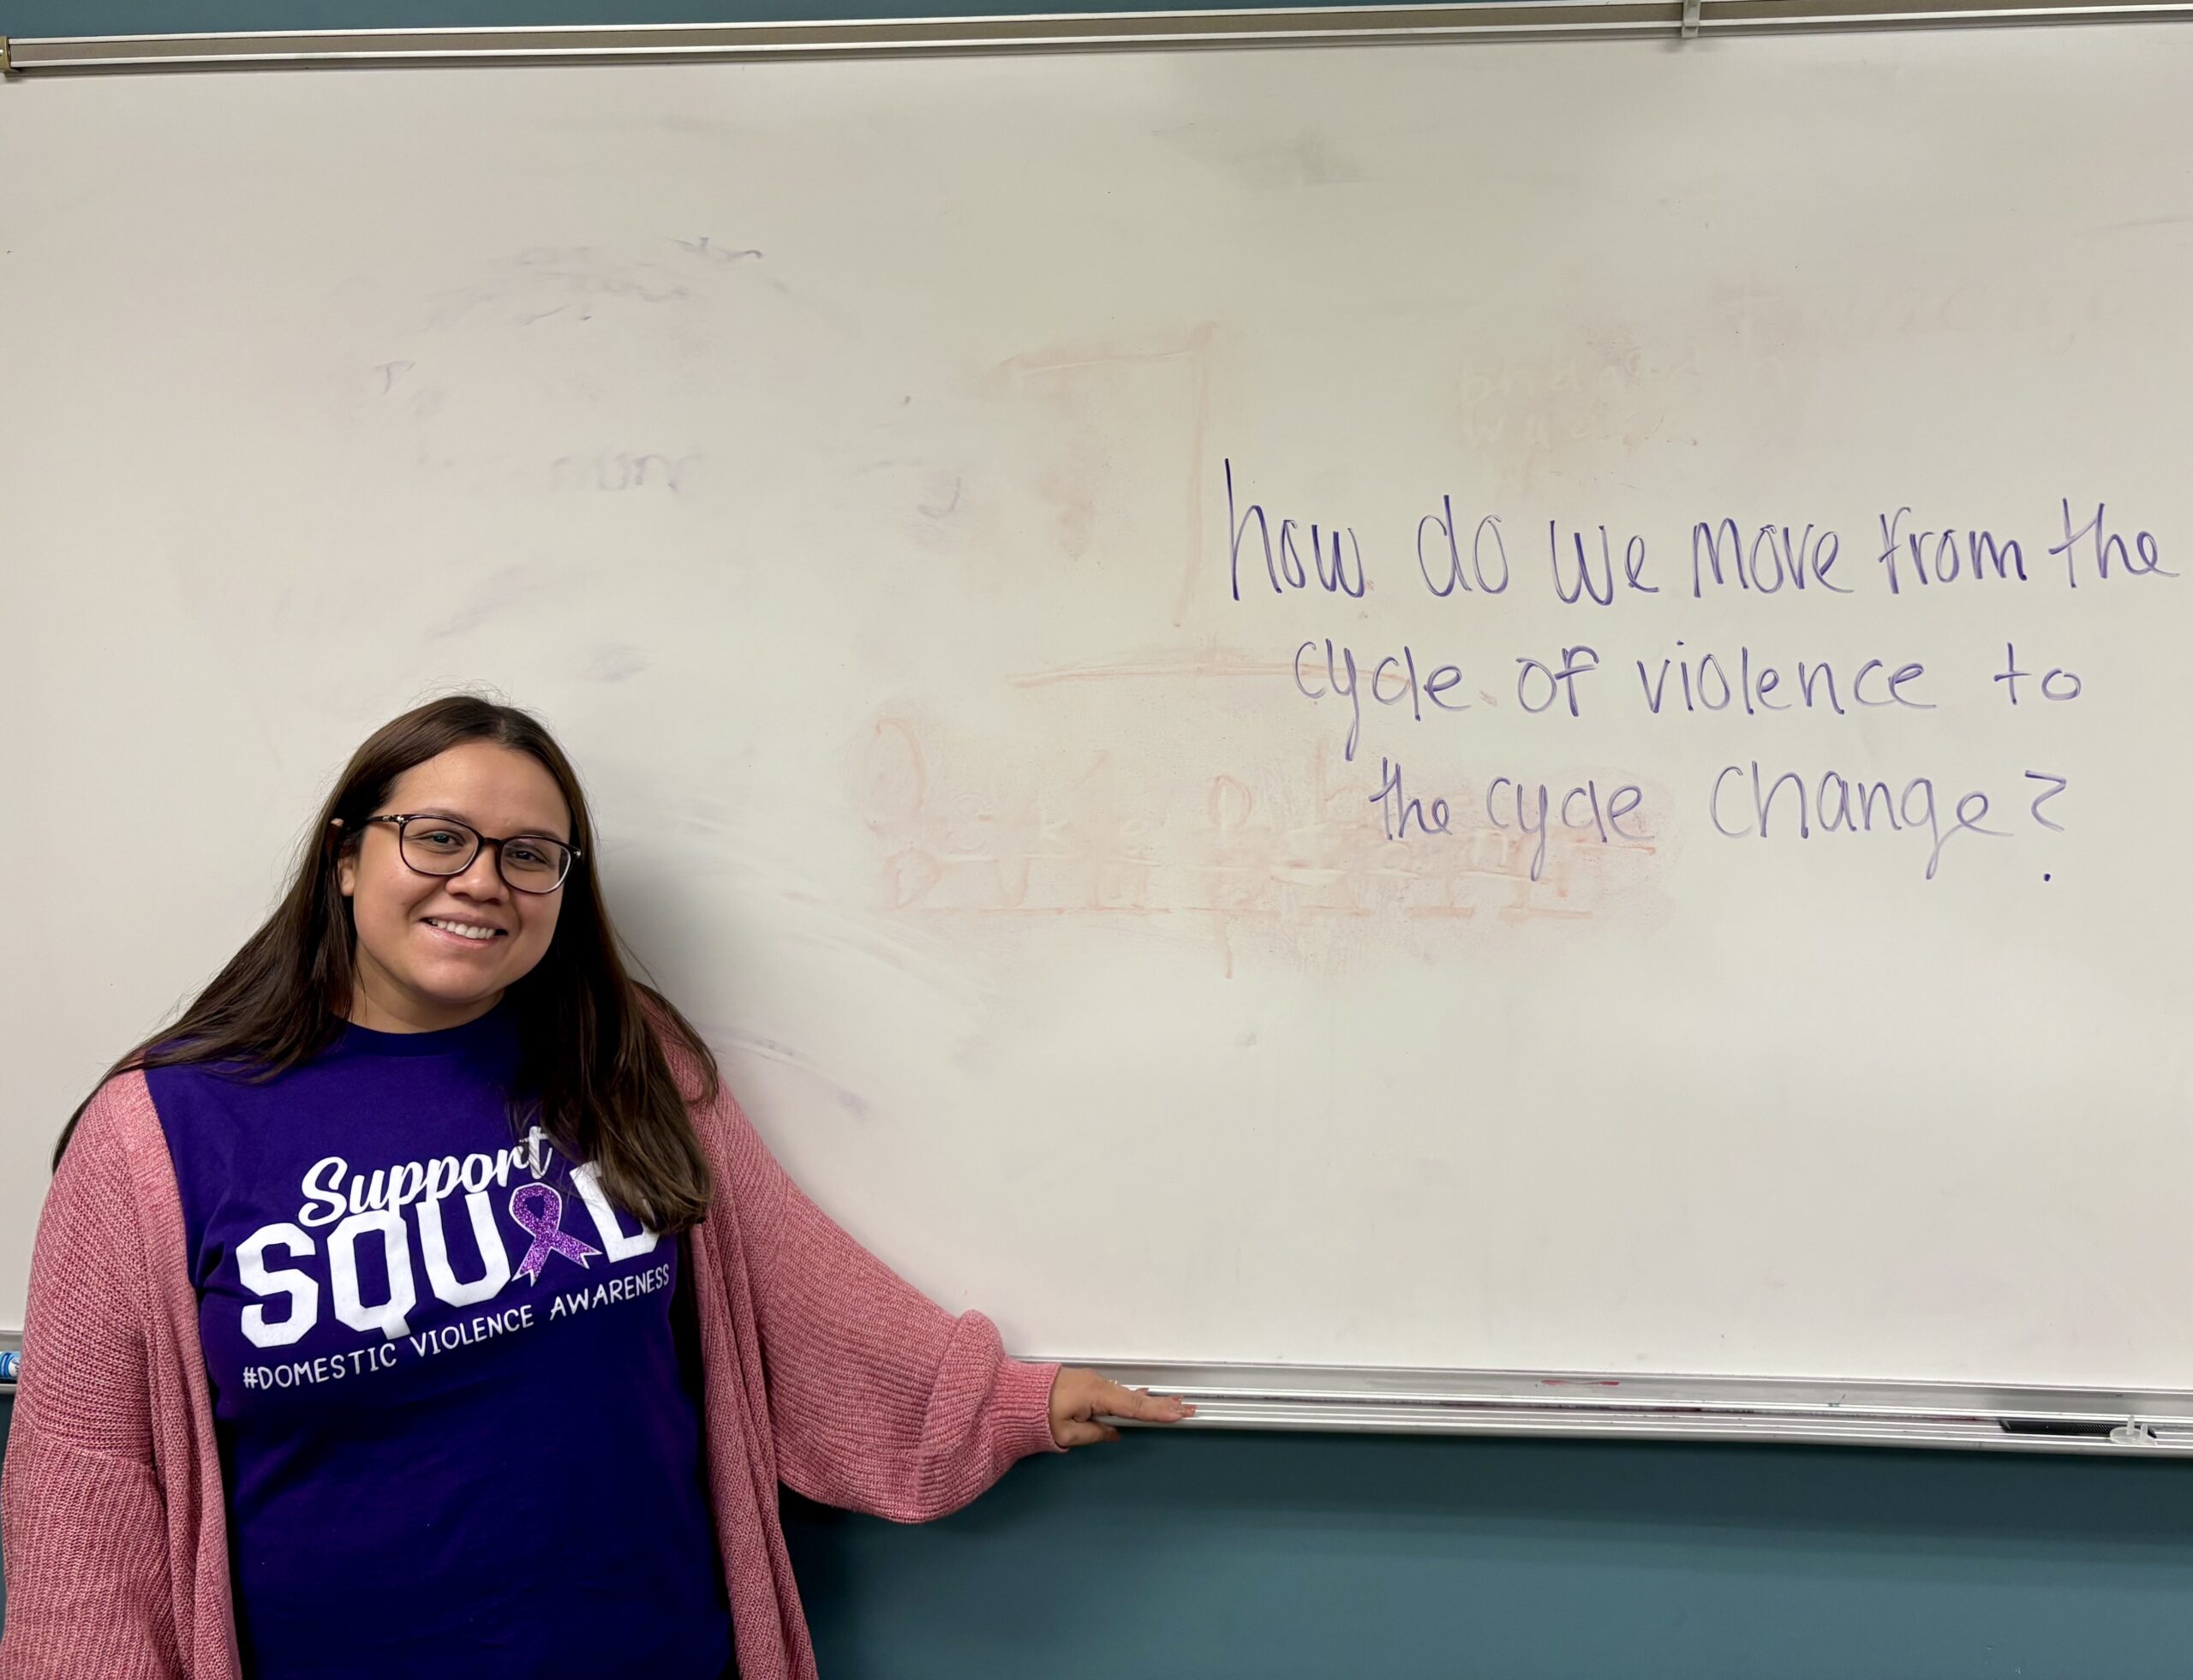 how do we move from the
cycle of violence to
the cycle change?
Support
SQUAD
#DOMESTIC VIOLENCE AWARENESS